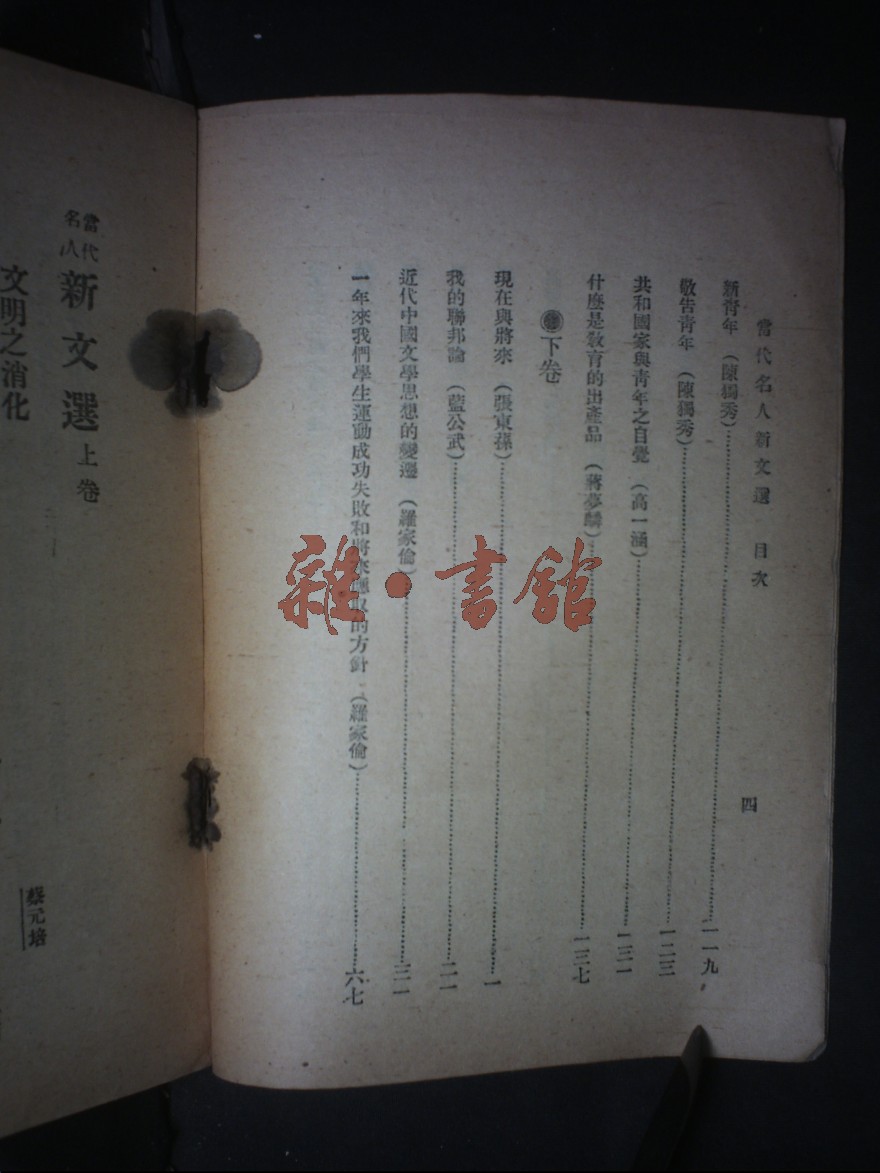 當代名人新文選 目次
四
新青年 (陳獨秀)……一一九
敬告青年 (陳獨秀)……一二三
共和國家與青年之自覺 (高一涵)……一三一
什麼是敎育的出產品 (蔣夢麟)……一三七
下卷
現在與將來 (張東蓀)……一
我的聯邦論 (藍公武)……二一
近代中國文學思想的變遷 (羅家倫)……三一
一年來我們學生運動成功失敗和將來應取的方針 (羅家倫)……六七
當代名人新文選 上卷
文明之消化
蔡元培
雜·書館